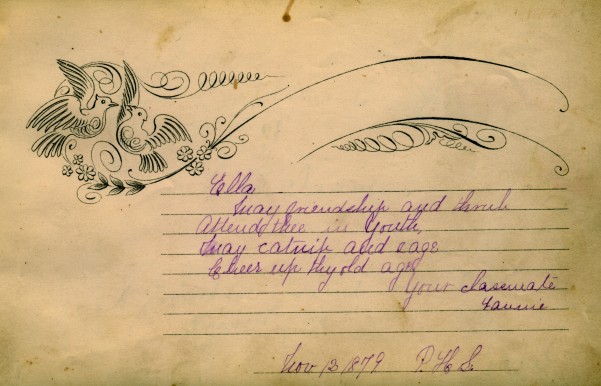 Ella
Ella
May friendship and truth
Attend thee in Youth,
May catnip and sage
Cheer up thy old age
Your classmate
Nov 13 1879 P. H. S.